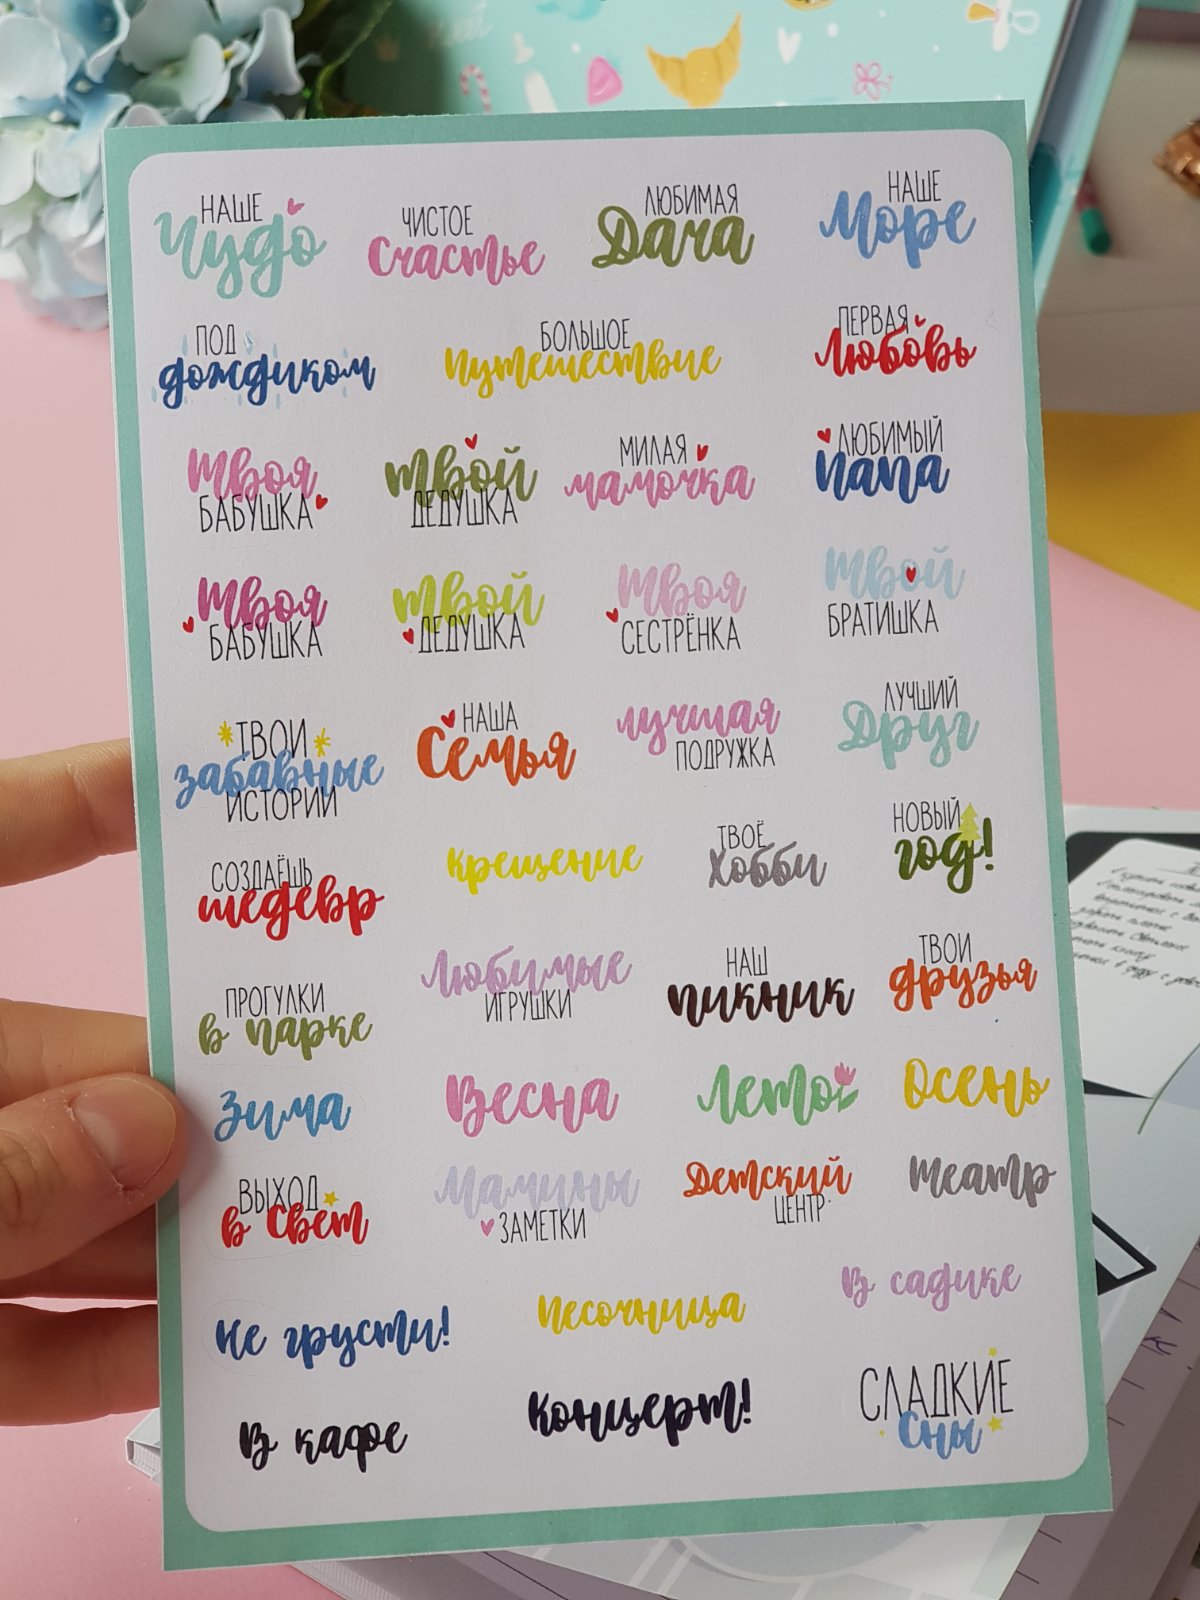 НАШЕ
Чудо
ЧИСТОЕ
Счастье
ЛЮБИМАЯ
Дача
НАШЕ
Море
ПОД
дождиком
БОЛЬШОЕ
путешествие
ПЕРВАЯ
Любовь
твоя
БАБУШКА
твой
ДЕДУШКА
МИЛАЯ
мамочка
ЛЮБИМЫЙ
папа
твоя
БАБУШКА
твой
ДЕДУШКА
твоя
СЕСТРЁНКА
твой
БРАТИШКА
ТВОИ
забавные
ИСТОРИИ
НАША
Семья
лучшая
ПОДРУЖКА
ЛУЧШИЙ
Друг
СОЗДАЁШЬ
шедевр
крещение
ТВОЁ
Хобби
НОВЫЙ
год!
ПРОГУЛКИ
в парке
Любимые
ИГРУШКИ
НАШ
пикник
ТВОИ
друзья
Зима
Весна
Лето
Осень
ВЫХОД
в свет
Мамины
ЗАМЕТКИ
Детский
ЦЕНТР
театр
не грусти!
песочница
В садике
В кафе
концерт!
СЛАДКИЕ
Сны